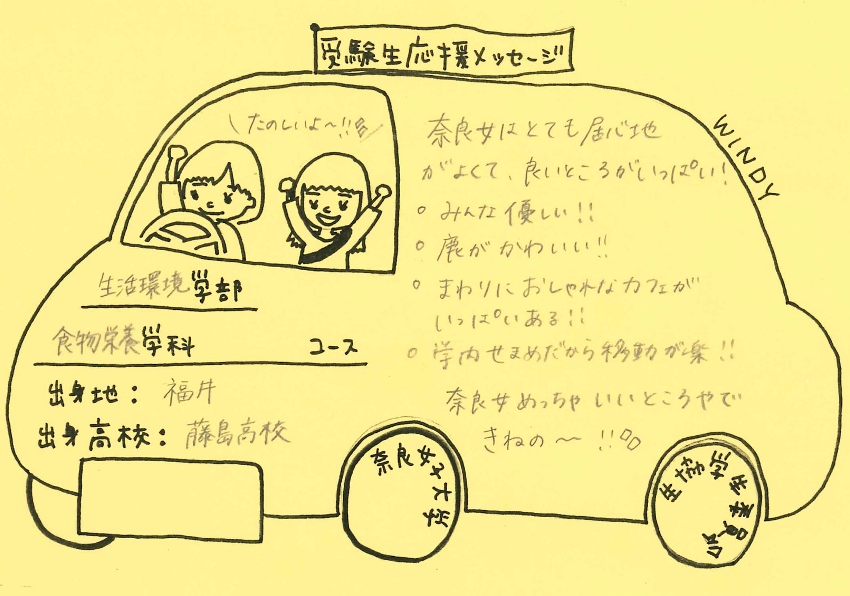 受験生応援メッセージ
\たのしいよ〜!!/
WINDY
生活環境学部
食物栄養学科 コース
出身地： 福井
出身高校： 藤島高校
奈良女はとても居心地
がよくて、良いところがいっぱい!
○ みんな優しい!!
○ 鹿がかわいい!!
○ まわりにおしゃれなカフェが
いっぱいある!!
○ 学内せまめだから移動が楽!!
奈良女めっちゃいいところやで
きねの〜!!
奈良女子大学
生協学生委員会